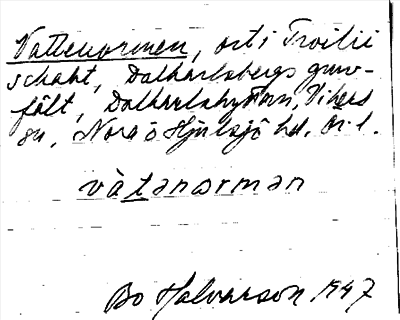 Vattenormen, ort i Troilii
schakt, Dalkarlsbergs gruv-
fält, Dalkarlshyttan, Vikers
sn, Nora o Hjulsjö hd, Ör. l.
vàtənormən
Bo Halvarson 1947